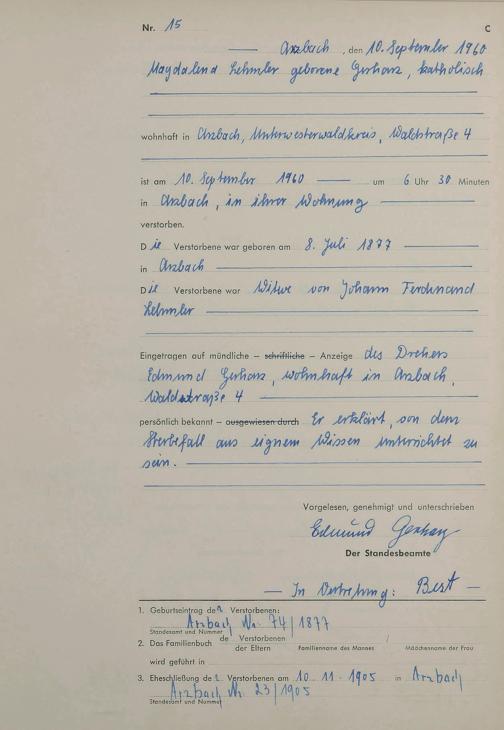 Nr. 15 C
Arzbach, den 10. September 1960
Magdalena Lehmler geborene Gerharz, katholisch
wohnhaft in Arzbach, Unterwesterwaldkreis, Waldstraße 4
ist am 10. September 1960 um 6 Uhr 30 Minuten
in Arzbach, in ihrer Wohnung
verstorben.
Die Verstorbene war geboren am 8. Juli 1877
in Arzbach
Die Verstorbene war Witwe von Johann Ferdinand
Lehmler
Eingetragen auf mündliche – schriftliche – Anzeige des Drehers
Edmund Gerharz, wohnhaft in Arzbach,
Waldstraße 4
persönlich bekannt – ausgewiesen durch Er erklärt, von dem
Sterbefall aus eignem Wissen unterrichtet zu
sein.
Vorgelesen, genehmigt und unterschrieben
Edmund Gerharz
Der Standesbeamte
In Vertretung: Best
1. Geburtseintrag der Verstorbenen:
Arzbach Nr. 74/1877
Standesamt und Nummer
2. Das Familienbuch de Verstorbenen
der Eltern Familienname des Mannes / Mädchenname der Frau
wird geführt in
3. Eheschließung der Verstorbenen am 10.11.1905 in Arzbach
Arzbach Nr. 23/1905
Standesamt und Nummer